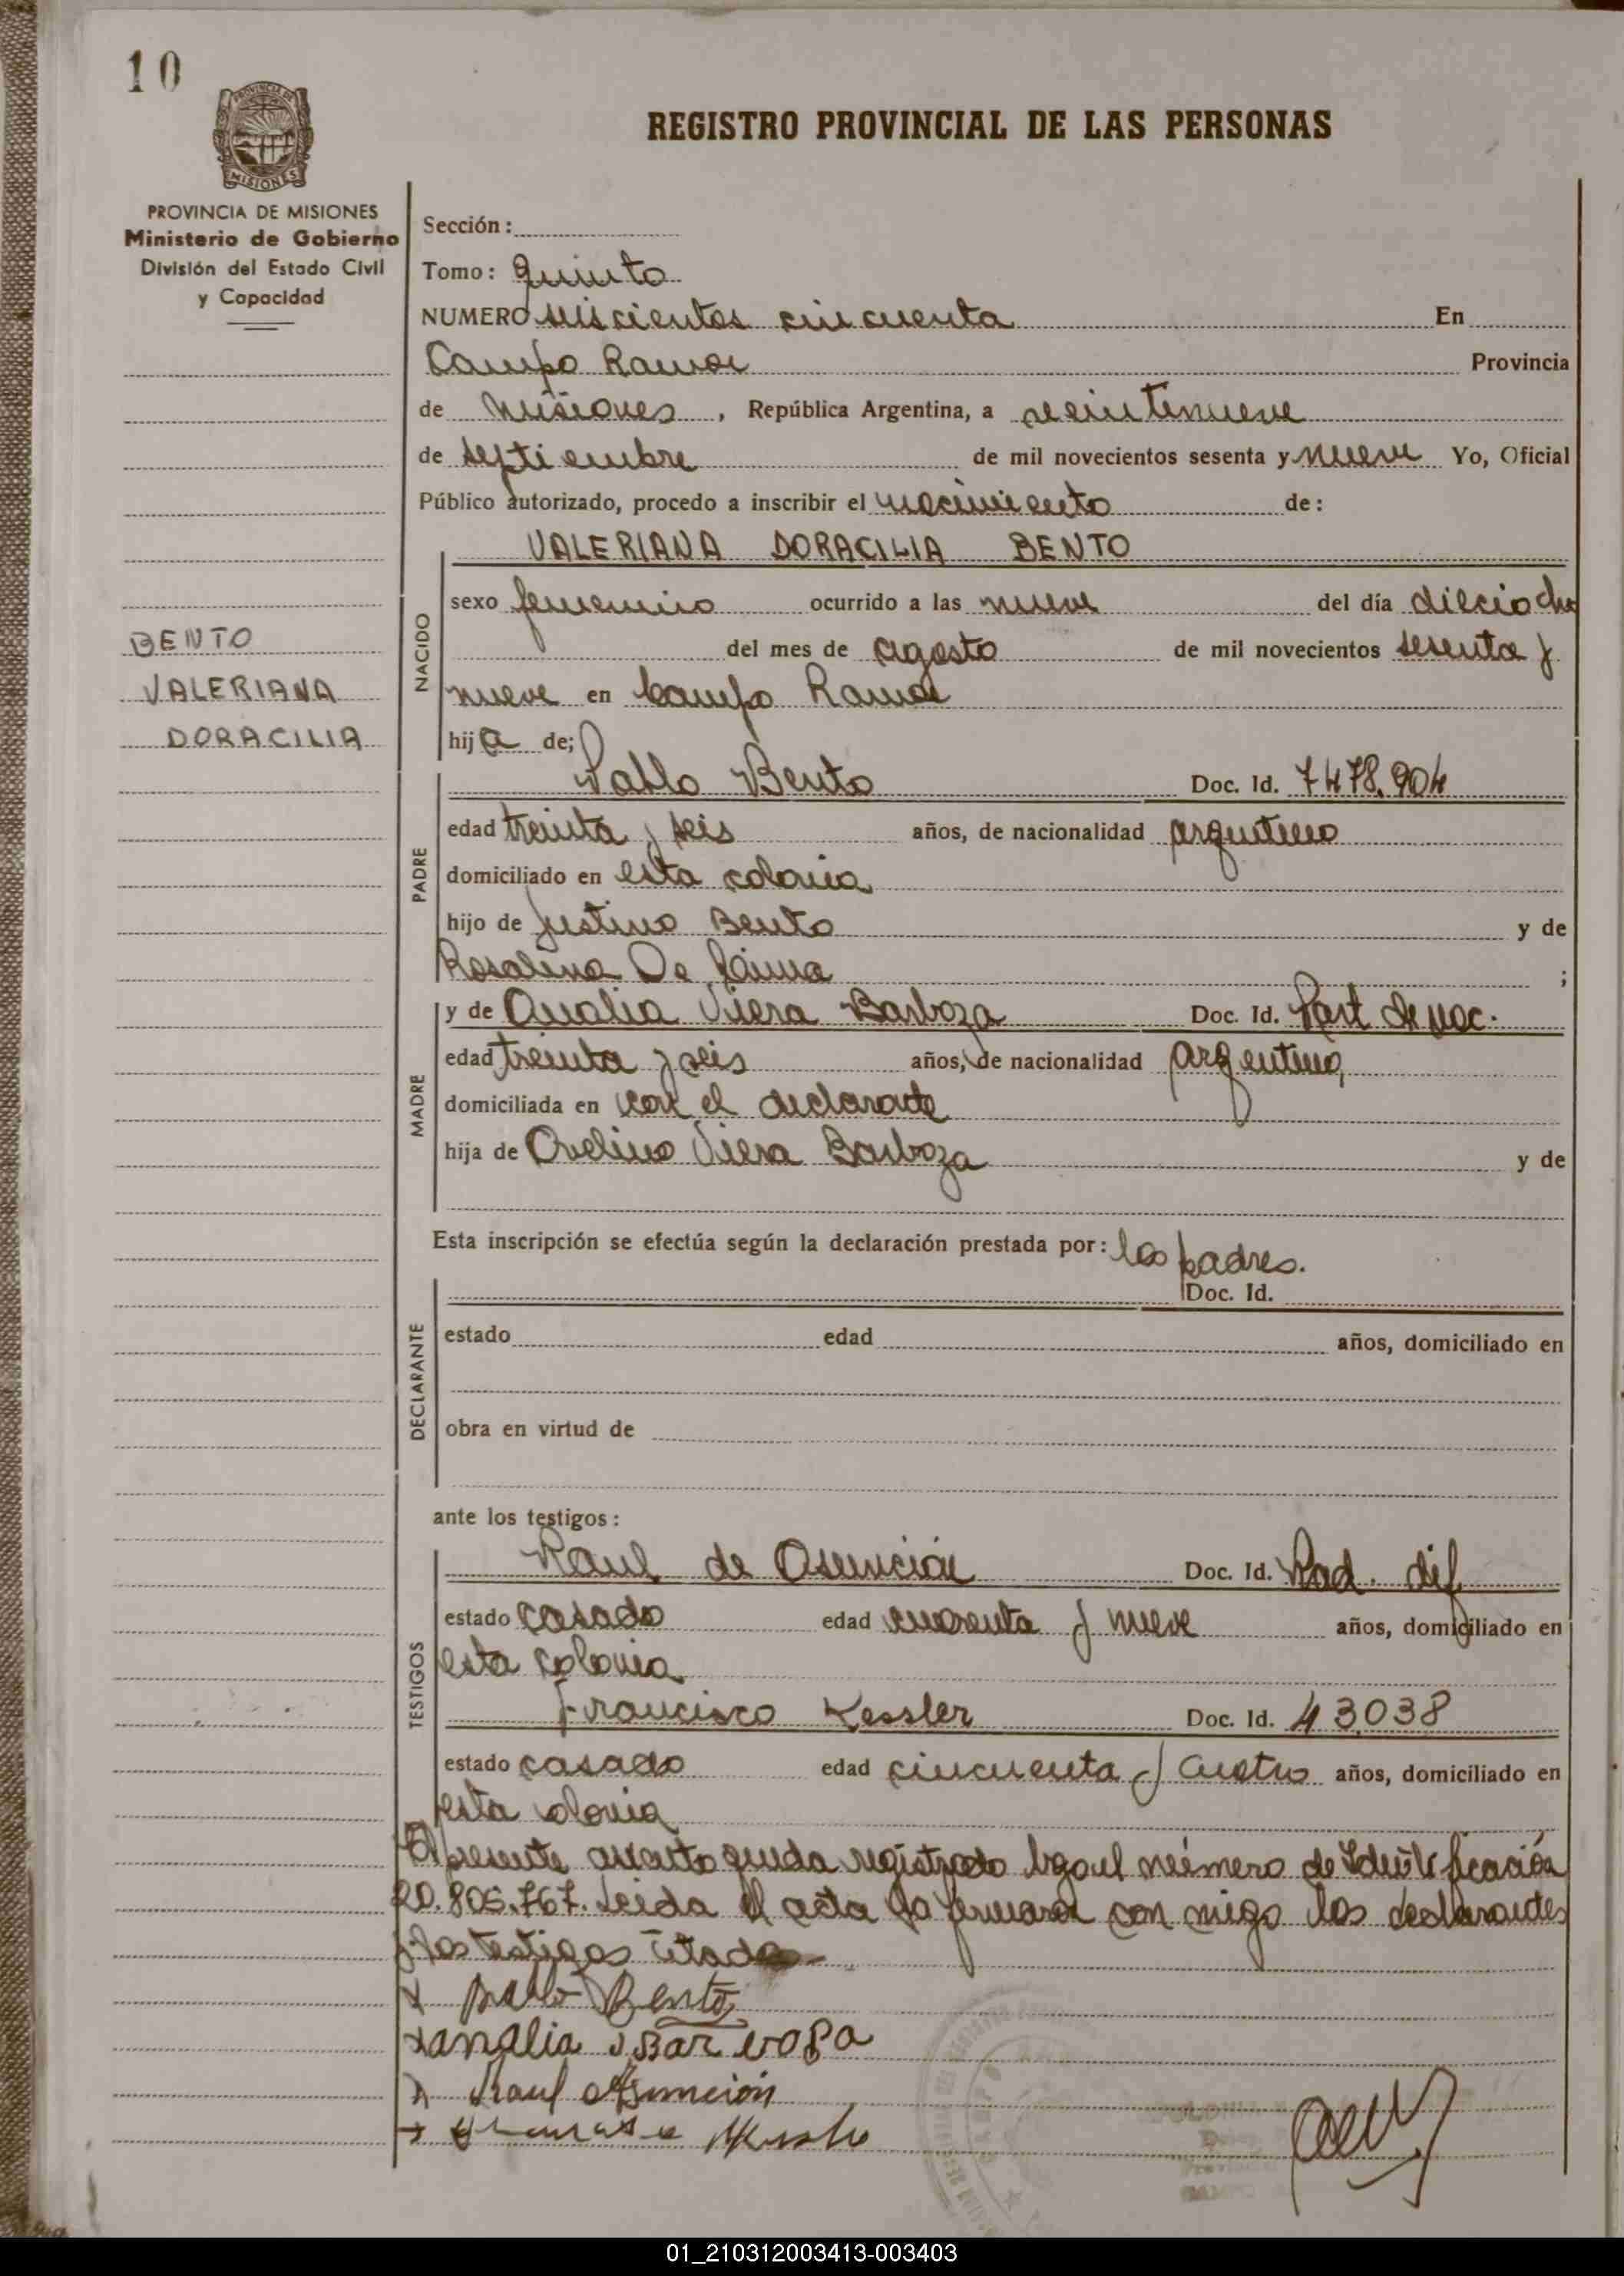 10
PROVINCIA DE MISIONES
REGISTRO PROVINCIAL DE LAS PERSONAS
PROVINCIA DE MISIONES
Ministerio de Gobierno
División del Estado Civil
y Capacidad
Sección:
Tomo: quinto
NUMERO seiscientos cincuenta En
Campo Ramon Provincia
de Misiones, República Argentina, a veintinueve
de septiembre de mil novecientos sesenta y nueve Yo, Oficial
Público autorizado, procedo a inscribir el nacimiento de:
VALERIANA DORACILIA BENTO
NACIDO
sexo femenino ocurrido a las nueve del día dieciocho
del mes de agosto de mil novecientos sesenta y
nueve en Campo Ramon
hija de;
BENTO
VALERIANA
DORACILIA
PADRE
Pablo Bento Doc. Id. 7478.904
edad treinta y seis años, de nacionalidad argentino
domiciliado en esta colonia
hijo de Justino Bento y de
Rosalina De ;
MADRE
y de Analia Viera Barboza Doc. Id. Part de nac.
edad treinta y seis años, de nacionalidad argentina,
domiciliada en con el declarante
hija de Ovelino Viera Barboza y de
Esta inscripción se efectúa según la declaración prestada por: los padres.
DECLARANTE
Doc. Id.
estado edad años, domiciliado en
obra en virtud de
ante los testigos:
TESTIGOS
Raul de Asunción Doc. Id. Rad. dif
estado casado edad cuarenta y nueve años, domiciliado en
esta colonia
Francisco Kessler Doc. Id. 43038
estado casado edad cincuenta y cuatro años, domiciliado en
esta colonia
El presente asiento queda registrado bajo el número de Identificación
20.805.767. Leida el acta la firman con migo los declarantes
y los testigos citados
x pablo Bento
x analia v Bar
x Raul Asunción